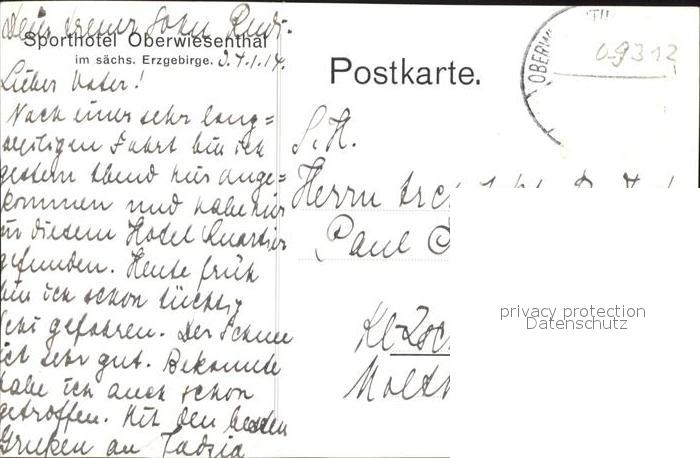 Dein treuer Sohn Rudi.
Sporthotel Oberwiesenthal
im sächs. Erzgebirge. d. 7.1.14.
Lieber Vater!
Nach einer sehr lang=
weiligen Fahrt bin ich
gestern Abend hier ange=
kommen und habe hier
in diesem Hotel Quartier
gefunden. Heute früh
bin ich schon tüchtig
Ski gefahren. Der Schnee
ist sehr gut. Bekannte
habe ich auch schon
getroffen. Mit den besten
Grüßen an
Postkarte.
OBERWI
S.H.
Herrn
Paul
Kl-Zsc
privacy protection
Datenschutz